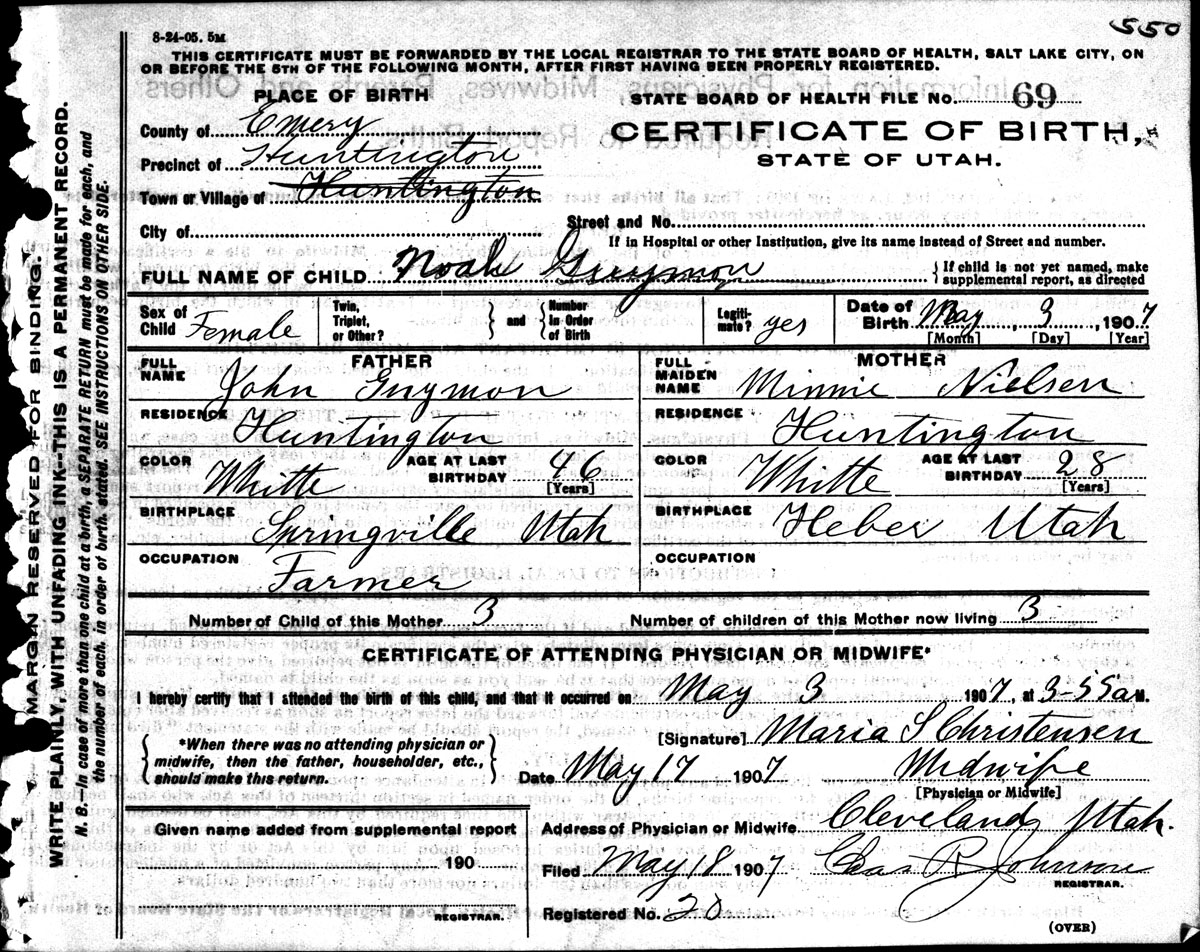 550
8-24-05. 5M
THIS CERTIFICATE MUST BE FORWARDED BY THE LOCAL REGISTRAR TO THE STATE BOARD OF HEALTH, SALT LAKE CITY, ON
OR BEFORE THE 5TH OF THE FOLLOWING MONTH, AFTER FIRST HAVING BEEN PROPERLY REGISTERED.
PLACE OF BIRTH
STATE BOARD OF HEALTH FILE No. 69
County of Emery
CERTIFICATE OF BIRTH,
Precinct of Huntington
STATE OF UTAH.
Town or Village of Huntington
City of
Street and No.
If in Hospital or other Institution, give its name instead of Street and number.
FULL NAME OF CHILD Noah Guymon { If child is not yet named, make
supplemental report, as directed
Sex of Child Female
Twin, Triplet, or Other? } and { Number In Order of Birth
Legiti-mate? yes
Date of Birth May, 3, 1907
[Month] [Day] [Year]
FATHER
FULL NAME John Guymon
RESIDENCE Huntington
COLOR Whitte AGE AT LAST BIRTHDAY 46
[Years]
BIRTHPLACE Springville Utah
OCCUPATION Farmer
MOTHER
FULL MAIDEN NAME Minnie Nielsen
RESIDENCE Huntington
COLOR Whitte AGE AT LAST BIRTHDAY 28
[Years]
BIRTHPLACE Heber Utah
OCCUPATION
Number of Child of this Mother 3 Number of children of this Mother now living 3
CERTIFICATE OF ATTENDING PHYSICIAN OR MIDWIFE*
I hereby certify that I attended the birth of this child, and that it occurred on May 3 1907, at 3-55 a M.
[Signature] Maria S Christensen
{ *When there was no attending physician or
midwife, then the father, householder, etc.,
should make this return. }
Date May 17 1907 Midwife
[Physician or Midwife]
Given name added from supplemental report
190
REGISTRAR.
Address of Physician or Midwife Cleveland Utah.
Filed May 18 1907 Chas P. Johnson
REGISTRAR.
Registered No. 20
(OVER)
MARGIN RESERVED FOR BINDING.
WRITE PLAINLY, WITH UNFADING INK—THIS IS A PERMANENT RECORD.
N. B.—In case of more than one child at a birth, a SEPARATE RETURN must be made for each, and
the number of each, in order of birth, stated. SEE INSTRUCTIONS ON OTHER SIDE.